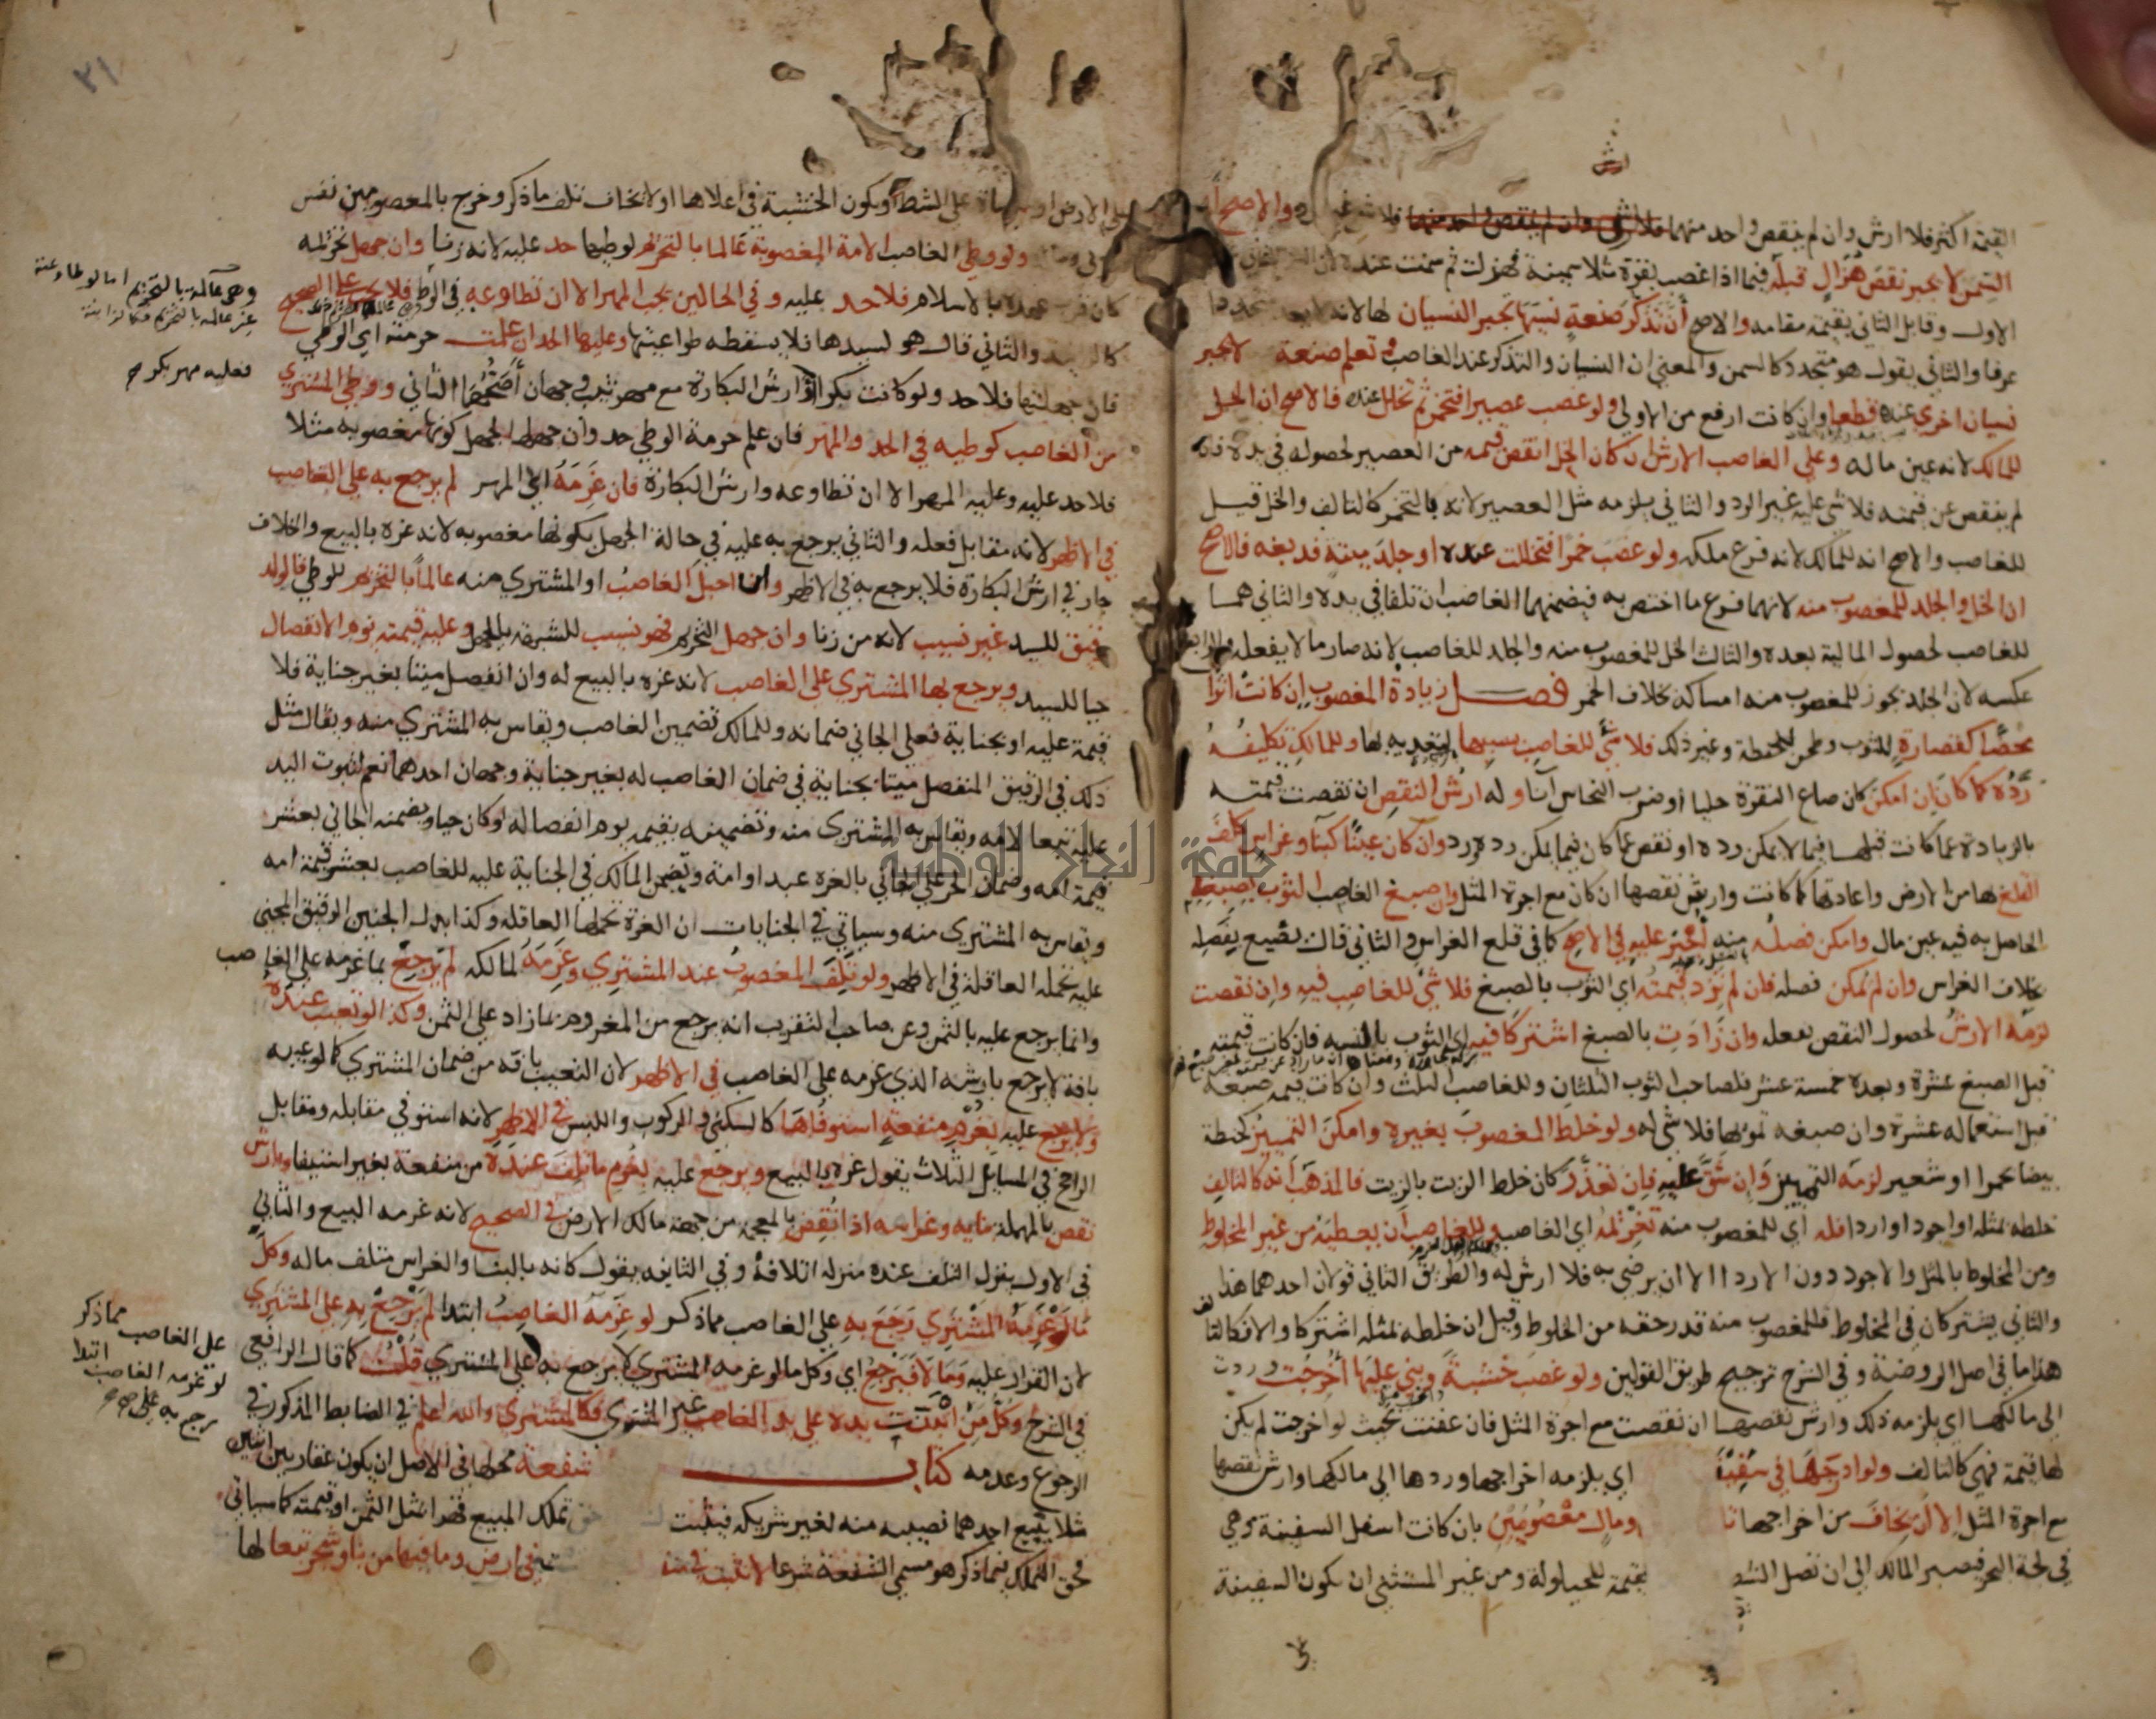 القيمة اكثر فلا ارش وان لم ينقص واحد منهما فلا شي غير الرد والاصح ان
السمن لا يجبر نقص هزال قبله فيما اذا غصب بقرة مثلا سمينة فهزلت ثم سمنت عنده لان
الاول وقابل الثاني بقيمته مقامه والاصح أن تذكر صنعة نسيها تجبر النسيان لها لانه لا يعد متجددا
عرفا والثاني يقول هو متجدد كالسمن والمعنى ان النسيان والتذكر عند الغاصب وتعلم صنعة لا يجبر
نسيان اخرى عنده قطعا وان كانت ارفع من الاولى ولو غصب عصيرا فتخمر ثم تخلل عنده فالاصح ان الخل
للمالك لانه عين ماله وعلى الغاصب الارش ان كان الخل انقص قيمه من العصير لحصوله في يده فان
لم ينقص عن قيمته فلا شي عليه غير الرد والثاني يلزمه مثل العصير لانه بالتخمر كالتالف والخل قيل
للغاصب والاصح انه للمالك لانه فرع ملكه ولو غصب خمرا فتخللت عنده او جلد ميتة فدبغه فالاصح
ان الخل والجلد للمغصوب منه لانهما فرع ما اختص به فيضمنهما الغاصب ان تلفا في يده والثاني هما
للغاصب لحصول المالية بعده والثالث الخل للمغصوب منه والجلد للغاصب لانه صار مالا بفعله والرابع
عكسه لان الجلد يجوز للمغصوب منه امساكه بخلاف الخمر فصل زيادة المغصوب ان كانت اثرا
محضا كقصارة للثوب وطحن للحنطة وغير ذلك فلا شي للغاصب بسببها لتعديه بها وللمالك تكليفه
رده كما كان ان امكن كان صاغ النقرة حليا او ضرب النحاس آنا وله ارش النقص ان نقصت قيمته
بالزيادة عما كانت قبلها فيما لا يمكن رده او نقص عما كان فيما يمكن رده ورد وان كان عينا كبنا وغراس كلف
القلع لها من الارض واعادتها كما كانت وارش نقصها ان كان مع اجرة المثل وان صبغ الغاصب الثوب بصبغه
الحاصل به فيه عين مال وامكن فصله منه أجبر عليه في الاصح كما في قلع الغراس والثاني قال يضيع بفصله
بخلاف الغراس وان لم يمكن فصله فان لم تزد قيمته اي الثوب بالصبغ فلا شي للغاصب فيه وان نقصت
لزمه الارش لحصول النقص بفعله وان زادت بالصبغ اشتركا فيه اي الثوب بالنسبه فان كانت قيمته
قبل الصبغ عشرة وبعده خمسة عشر فلصاحب الثوب الثلثان وللغاصب الثلث وان كانت قيمه صبغه
قبل استعماله عشرة وان صبغه تمويها فلا شي له ولو خلط المغصوب بغيره وامكن التمييز كحنطة
بيضا بحمرا او شعير لزمه التمييز وان شق عليه فان تعذر كان خلط الزيت بالزيت فالمذهب أنه كالتالف
خلطه بمثله او اجود او اردا فله اي للمغصوب منه تغريمه اي الغاصب وللغاصب أن يعطيه من غير المخلوط
ومن المخلوط بالمثل والاجود دون الاردا الا ان يرضى به فلا ارش له والطريق الثاني قولان احدهما هذا
والثاني يشتركان في المخلوط فللمغصوب منه قدر حقه من المخلوط وقيل ان خلطه بمثله اشتركا والا فكالتا
هذا ما في اصل الروضة وفي الشرح ترجيح طريق القولين ولو غصب خشبة وبنى عليها أخرجت وردت
الى مالكها اي يلزمه ذلك وارش نقصها ان نقصت مع اجرة المثل فان عفنت بحيث لو اخرجت لم يكن
لها قيمة فهي كالتالف ولو ادرجها في سفينة اي يلزمه اخراجها وردها الى مالكها وارش نقصها
مع اجرة المثل الا ان يخاف من اخراجها ومال معصومين بان كانت اسفل السفينة وهي
في لجة البحر فيصبر المالك الى ان تصل الشط قيمته للحيلولة ومن غير المستثنى ان تكون السفينة
٢١
على الارض او على الشط او يكون الخشبة في اعلاها او لا يخاف تلف ما ذكر وخرج بالمعصومين نفس
ولو وطي الغاصب الامة المغصوبة عالما بالتحريم لوطيها حد عليه لانه زنا وان جهل تحريمه
بالاسلام فلا حد عليه وفي الحالين يجب المهر الا ان تطاوعه في الوطي فلا يجب على الصحيح
والثاني قال هو لسيدها فلا يسقطه طواعيتها وعليها الحد ان علمت حرمته اي الوطي
فان جهلتها فلا حد ولو كانت بكرا فارش البكارة مع مهر ثيب وجهان أصحهما الثاني ووطي المشتري
من الغاصب كوطيه في الحد والمهر فان علم حرمة الوطي حد وان جهل لجهل كونها مغصوبه مثلا
فلا حد عليه وعليه المهر الا ان تطاوعه وارش البكارة فان غرمه اي المهر لم يرجع به على الغاصب
في الاظهر لانه مقابل فعله والثاني يرجع به عليه في حالة الجهل بكونها مغصوبه لانه غره بالبيع والخلاف
جار في ارش البكارة فلا يرجع به في الاظهر وان احبل الغاصب او المشتري منه عالما بالتحريم للوطي فالولد
رقيق للسيد غير نسيب لانه من زنا وان جهل التحريم فحر نسيب للشبهة بالجهل وعليه قيمته يوم الانفصال
حيا للسيد ويرجع بها المشتري على الغاصب لانه غره بالبيع له وان انفصل ميتا بغير جناية فلا
قيمة عليه او بجناية فعلى الجاني ضمانه وللمالك تضمين الغاصب ويقاس به المشتري منه ويقال مثل
ذلك في الرقيق المنفصل ميتا بجناية في ضمان الغاصب له بغير جناية وجهان احدهما نعم لثبوت اليد
عليه تبعا لامه ويقاس به المشتري منه وتضمينه بقيمه يوم انفصاله لو كان حيا ويضمنه الجاني بعشر
قيمة امه وضمان الحر على الجاني بالغره عبد او امة ويضمن المالك في الجناية عليه للغاصب بعشر قيمة امه
ويقاس به المشتري منه وسياتي في الجنايات ان الغرة تحملها العاقله وكذا بدل الجنين الرقيق المجنى
عليه تحمله العاقلة في الاظهر ولو تلف المغصوب عند المشتري وغرمه لمالكه لم يرجع بما غرمه على الغاصب
وانما يرجع عليه بالثمن وعن صاحب التقريب انه يرجع من المغروم بما زاد على الثمن وكذا لو تعيب عنده
بافة لا يرجع بارشه الذي غرمه على الغاصب في الاظهر لان التعييب بافه من ضمان المشتري كما لو عيبه
ولا يرجع عليه بغرم منفعة استوفاها كالسكنى والركوب واللبس في الاظهر لانه استوفى مقابله ومقابل
الراجح في المسايل الثلاث يقول غره بالبيع ويرجع عليه بغرم ما تلف عنده من منفعة بغير استيفا وبارش
نقص بالمهملة بنايه وغراسه اذا نقض بالمعجمه من جهة مالك الارض في الصحيح لانه غره بالبيع والثاني
في الاول ينزل التلف عنده منزلة اتلافه وفي الثانيه يقول كانه بالبنا والغراس متلف ماله وكل
ما لو غرمه المشتري رجع به على الغاصب مما ذكر لو غرمه الغاصب ابتدا لم يرجع به على المشتري
لان القرار عليه وما لا فيرجع اي وكل ما لو غرمه المشتري لا يرجع به على المشتري قلت كما قال الرافعي
في الشرح وكل من انبنت يده على يد الغاصب غير المشتري فكالمشتري والله اعلم في الضابط المذكور في
الرجوع وعدمه كتاب شفعة محلها في الاصل ان يكون عقار بين اثنين
مثلا يبيع احدهما نصيبه منه لغير شريكه فيثبت حق تملك المبيع قهرا بمثل الثمن او قيمته كما سياتي
فحق التملك فيما ذكر هو مسمى الشفعة شرعا لا تثبت في ارض وما فيها من بنا وشجر تبعا لها
وهي عالمه بالتحريم اما لو طاوعته
غير عالمه بالتحريم
فعليه مهر بكر صح
مما ذكر
على الغاصب
لو غرمه الغاصب ابتدا
يرجع به على
جامعة النجاح الوطنية